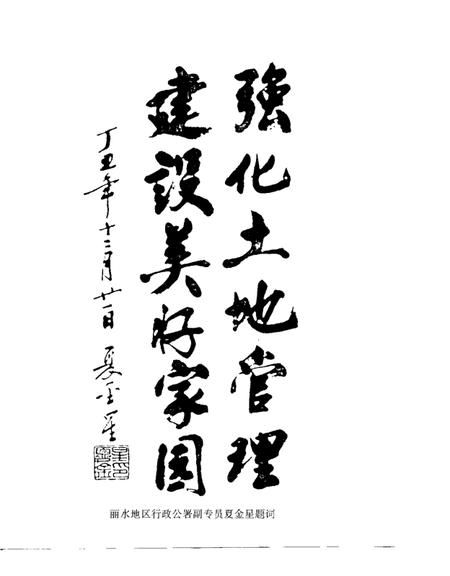 強化土地管理
建設美好家园
丁丑年十二月廿一日 夏金星
丽水地区行政公署副专员夏金星题词